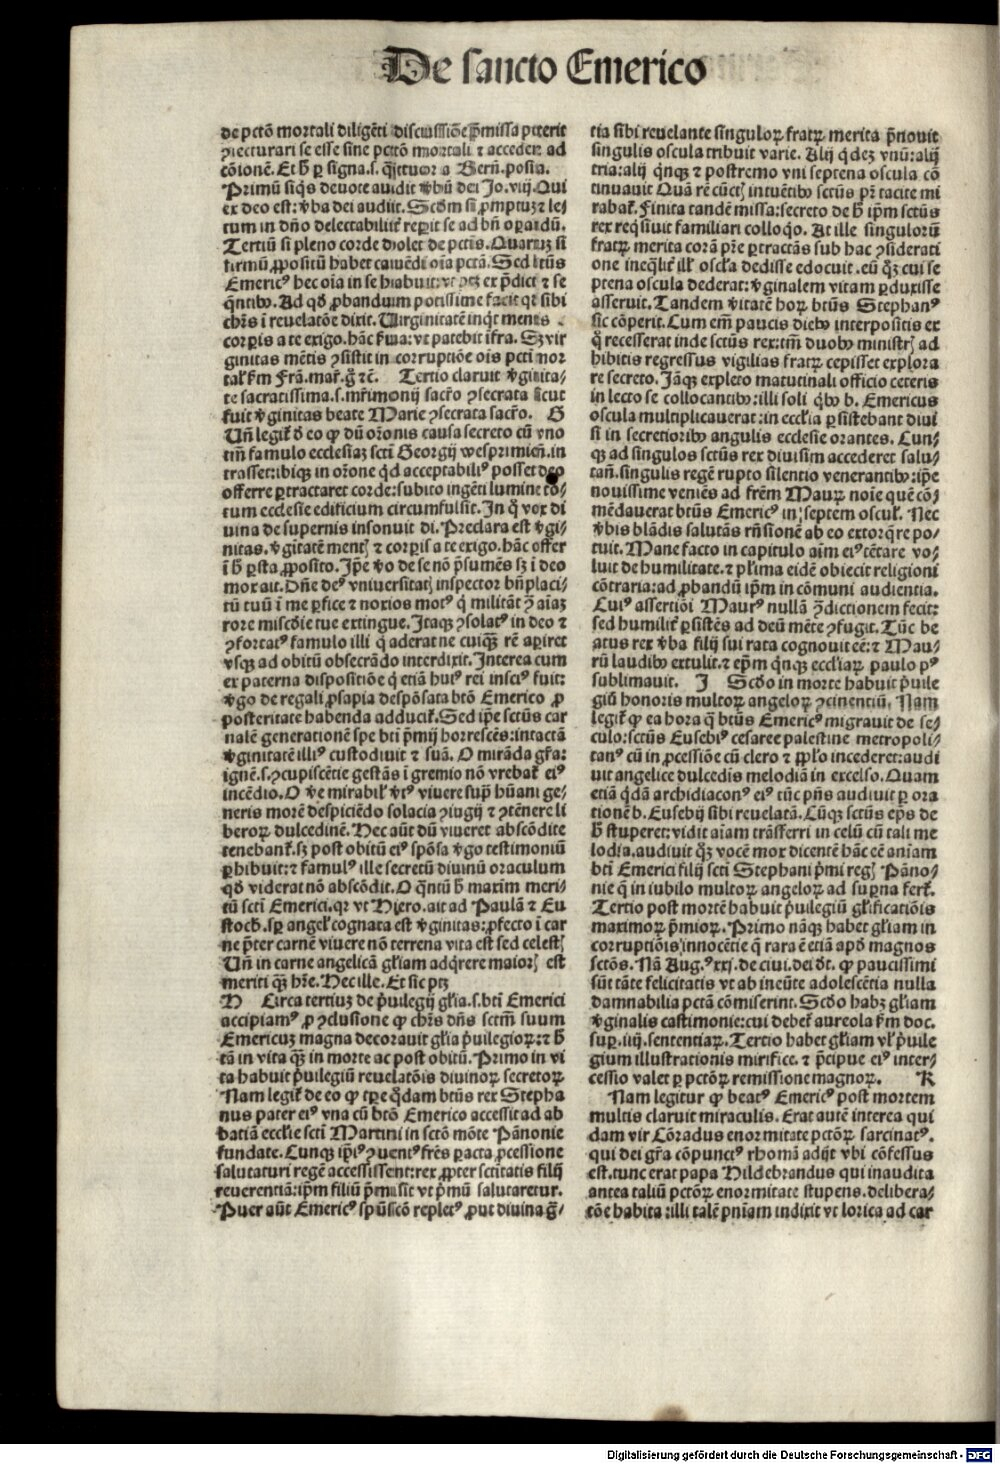 De sancto Emerico
de pctō mortali diligēti discussiōe p̄missa poterit
ꝯiecturari se esse sine pctō mortali ⁊ accedere ad
cōionē. Et h̄ ꝑ signa.s. q̄ttuor a Bern̄. posita.
Primū siq̄s deuote audit v̄bū dei Jo. viij. Qui
ex deo est: v̄ba dei audiit. Scd̄m si ꝓmptuꝫ ⁊ le/
tum in dn̄o delectabilit̓ reꝑit se ad bn̄ oꝑandū.
Tertiū si pleno corde ꝺolet de pctis. Quartuꝫ si
firmū ꝓpositū habet cauēdi oīa pctā. Sed btūs
Emericꝰ hec oīa in se habuit: vt ptꝫ ex p̄dict̓ ⁊ se
q̄ntibꝰ. Ad qd̓ ꝓbandum potissime facit qꝛ sibi
chr̄s ī reuelatōe dixit. Virginitatē inq̇t mentis
corꝑis a te exigo. hāc ẜua: vt patebit īfra. Sꝫ vir
ginitas mētis ꝯsistit in corruptiōe oīs pcti mor
tal̓ ẜm Frā. mar̓. ḡ ⁊c̄. Tertio claruit v̄ginita/
te sacratissima.s. mr̄imonij sacr̄o ꝯsecrata sicut
fuit v̄ginitas beate Marie ꝯsecrata sacr̄o. G
Vn̄ legit̓ d̓ eo ꝙ dū or̄onis causa secreto cū vno
tm̄ famulo ecclesiaꝫ scti Georgij wesprimien̄. in
trasset: ibiqꝫ in or̄one qd̓ acceptabiliꝰ posset deo
offerre ꝑtractaret corde: subito ingēti lumine to/
tum ecclesie edificium circumfulsit. In q̄ vox di
uina de supernis insonuit di. Preclara est v̄gi/
nitas. v̄g̓itatē mentꝭ ⁊ corꝑis a te exigo. hāc offer
ī h̄ ꝑsta ꝓposito. Jp̄e v̄o de se nō p̄sumēs sꝫ ī deo
mox ait. Dn̄e deꝰ vniuersitatꝭ inspector bn̄placi/
tū tuū ī me ꝑfice ⁊ noxios motꝰ q̇ militāt ꝯ aīaꝫ
rore misc̄die tue extingue. Itaqꝫ ꝯsolatꝰ in deo ⁊
ꝯfortatꝰ famulo illi q̇ aderat ne cuiqꝫ rē aꝑiret
vsqꝫ ad obitū obsecrādo interdixit. Interea cum
ex paterna dispositiōe q̇ etiā huiꝰ rei insciꝰ fuit:
v̄go de regali ꝓsapia despōsata btō Emerico ꝓ
posteritate habenda adducit̓. Sed ip̄e sctūs car
nalē generationē spe bti p̄mij horrescēs: intactā
v̄ginitatē illiꝰ custodiuit ⁊ suā. O mirāda gr̄a:
ignē.s. ꝯcupiscētie gestās ī gremio nō vrebat̓ eiꝰ
incēdio. O v̄e mirabil̓ v̓tꝰ viuere suꝑ hūani ge/
neris morē despiciēdo solacia ꝯiugij ⁊ ꝯtēnere li
beroꝝ dulcedinē. Hec aūt dū viueret abscōdite
tenebant̓. sꝫ post obitū eiꝰ spōsa v̄go testimoniū
ꝑhibuit: ⁊ famulꝰ ille secretū diuinū oraculum
qd̓ viderat nō abscōdit. O q̄ntū h̄ maxim̓ meri/
tū scti Emerici. qꝛ vt Hiero. ait ad Paulā ⁊ Eu
stoch̓. sꝑ angel̓ cognata est v̄ginitas: ꝓfecto ī car
ne p̄ter carnē viuere nōn terrena vita est sed celestꝭ
Vn̄ in carne angelicā gl̓iam adq̇rere maiorꝭ est
meriti qꝫ hr̄e. Hec ille. Et sic ptꝫ
H Circa tertiuꝫ de p̓uilegij gl̓ia.s. bti Emerici
accipiamꝰ ꝓ ꝯclusione ꝙ chr̄s dn̄s sctm̄ suum
Emericuꝫ magna decorauit gl̓ia p̓uilegioꝝ: ⁊ h̄
tā in vita qꝫ in morte ac post obitū. Primo in vi
ta habuit p̓uilegiū reuelatōis diuinoꝝ secretoꝝ
Nam legit̓ de eo ꝙ tꝑe q̄dam btūs rex Stepha
nus pater eiꝰ vna cū btō Emerico accessit ad ab
batiā eccl̓ie scti Martini in sctō mōte Pānonie
fundate. Cunqꝫ ip̄iꝰ ꝯuentꝰ fr̄es ꝑacta ꝓcessione
salutaturi regē accessissent: rex ꝓpter sctitatis filij
reuerentiā: ip̄m filiū p̄misit vt p̄mū salutaretur.
Puer aūt Emericꝰ sp̄ūscō repletꝰ ꝓut diuina ḡ/
tia sibi reuelante singuloꝝ fratꝝ merita p̄nouit
singulis oscula tribuit varie. Alij q̇deꝫ vnū: alij
tria: alij q̇nqꝫ ⁊ postremo vni septena oscula cō
tinuauit Quā rē cūctꝭ intuētibꝰ sctūs pr̄ tacite mi
rabat̓. Finita tandē missa: secreto de h̄ ip̄m sctūs
rex req̇siuit familiari colloq̇o. At ille singulorū
fratꝝ merita corā pr̄e ꝑtractās sub hac ꝯsiderati
one ineq̄lit̓ ill̓ oscl̓a dedisse edocuit. eū q̄ꝫ cui se
ptena oscula dederat: v̄ginalem vitam ꝑduxisse
asseruit. Tandem v̓itatē hoꝝ btūs Stephanꝰ
sic cōperit. Cum em̄ paucis diebꝰ interpositis ex
q̇ recesserat inde sctūs rex: tm̄ duobꝰ ministrꝭ ad
hibitis regressus vigilias fratꝝ cepisset explora
re secreto. Jāqꝫ expleto matutinali officio ceteris
in lecto se collocantibꝰ: illi soli q̇bꝰ b. Emericus
oscula multiplicauerat: in eccl̓ia ꝑsistebant diui
si in secretioribꝰ angulis ecclesie orantes. Cun/
qꝫ ad singulos sctūs rex diuisim accederet salu/
tan̄. singulis regē rupto silentio venerantibꝰ: ip̄e
nouissime veniēs ad fr̄em Mauꝝ noīe quē cō/
mēdauerat btūs Emericꝰ in septem oscul̓. Nec
v̄bis blādis salutās rn̄sionē ab eo extorq̄re po/
tuit. Mane facto in capitulo aīm eiꝰ tētare vo/
luit de humilitate. ⁊ pl̓ima eidē obiecit religioni
cōtraria: ad ꝓbandū ip̄m in cōmuni audientia.
Cuiꝰ assertiōi Maurꝰ nullā ꝯdictionem fecit:
sed humilit̓ ꝑsistēs ad deū mēte ꝯfugit. Tūc be
atus rex v̄ba filij sui rata cognouit eē: ⁊ Mau/
rū laudibꝰ extulit. ⁊ ep̄m q̇nqꝫ eccl̓iaꝝ paulo pꝰ
sublimauit. J Scd̄o in morte habuit p̓uile
giū honoris multoꝝ angeloꝝ ꝯcinentiū. Nam
legit̓ ꝙ ea hora q̄ btūs Emericꝰ migrauit de se/
culo: sctūs Eusebiꝰ cesaree palestine metropoli/
tanꝰ cū in ꝓcessiōe cū clero ⁊ pꝑl̓o incederet: audi
uit angelice dulcedīs melodiā in excelso. Quam
etiā q̇dā archidiaconꝰ eiꝰ tūc pn̄s audiuit ꝑ ora
tionē b. Eusebij sibi reuelatā. Cūqꝫ sctūs ep̄s de
h̄ stuperet: vidit aīam trāsferri in celū cū tali me
lodia. audiuit q̄ꝫ vocē mox dicentē hāc eē aīam
bti Emerici filij scti Stephani p̄mi regꝭ Pāno/
nie q̄ in iubilo multoꝝ angeloꝝ ad suꝑna fert̓.
Tertio post mortē habuit p̓uilegiū gl̓ificatiōis
maximoꝝ p̄mioꝝ. Primo nāqꝫ habet gl̓iam in
corruptiōis innocētie q̄ rara ē etiā apd̓ magnos
sctōs. Nā Aug.ꝰ xxj. de ciui. dei dt̓. ꝙ paucissimi
sūt tāte felicitatis vt ab ineūte adolescētia nulla
damnabilia pctā cōmiserint. Scd̄o habꝫ gl̓iam
v̄ginalis castimonie: cui debet̓ aureola ẜm doc.
suꝑ .iiij. sententiaꝝ. Tertio habet gl̓iam vl̓ p̓uile
gium illustrationis mirifice. ⁊ p̄cipue eiꝰ inter/
cessio valet ꝑ pctōꝝ remissione magnoꝝ. K
Nam legitur ꝙ beatꝰ Emericꝰ post mortem
multis claruit miraculis. Erat autē interea qui
dam vir Cōradus enormitate pctōꝝ sarcinatꝰ.
qui dei gr̄a cōpunctꝰ rhomā adijt vbi cōfessus
est. tunc erat papa Hildebrandus qui inaudita
antea taliū pctōꝝ enormitate stupens. delibera/
tōe habita: illi talē pn̄iam indixit vt lorica ad car
Digitalisierung gefördert durch die Deutsche Forschungsgemeinschaft - DFG